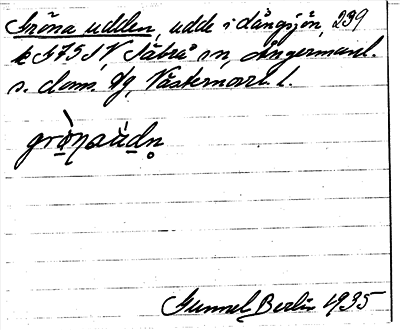 Gröna udden, udde i Långsjön, 239
k F75 SV, Säbrå sn, Ångermanl.
s. doms. dg, Västernorrl. l.
grò̀naùdn̥
Gunnel Berlin 1935